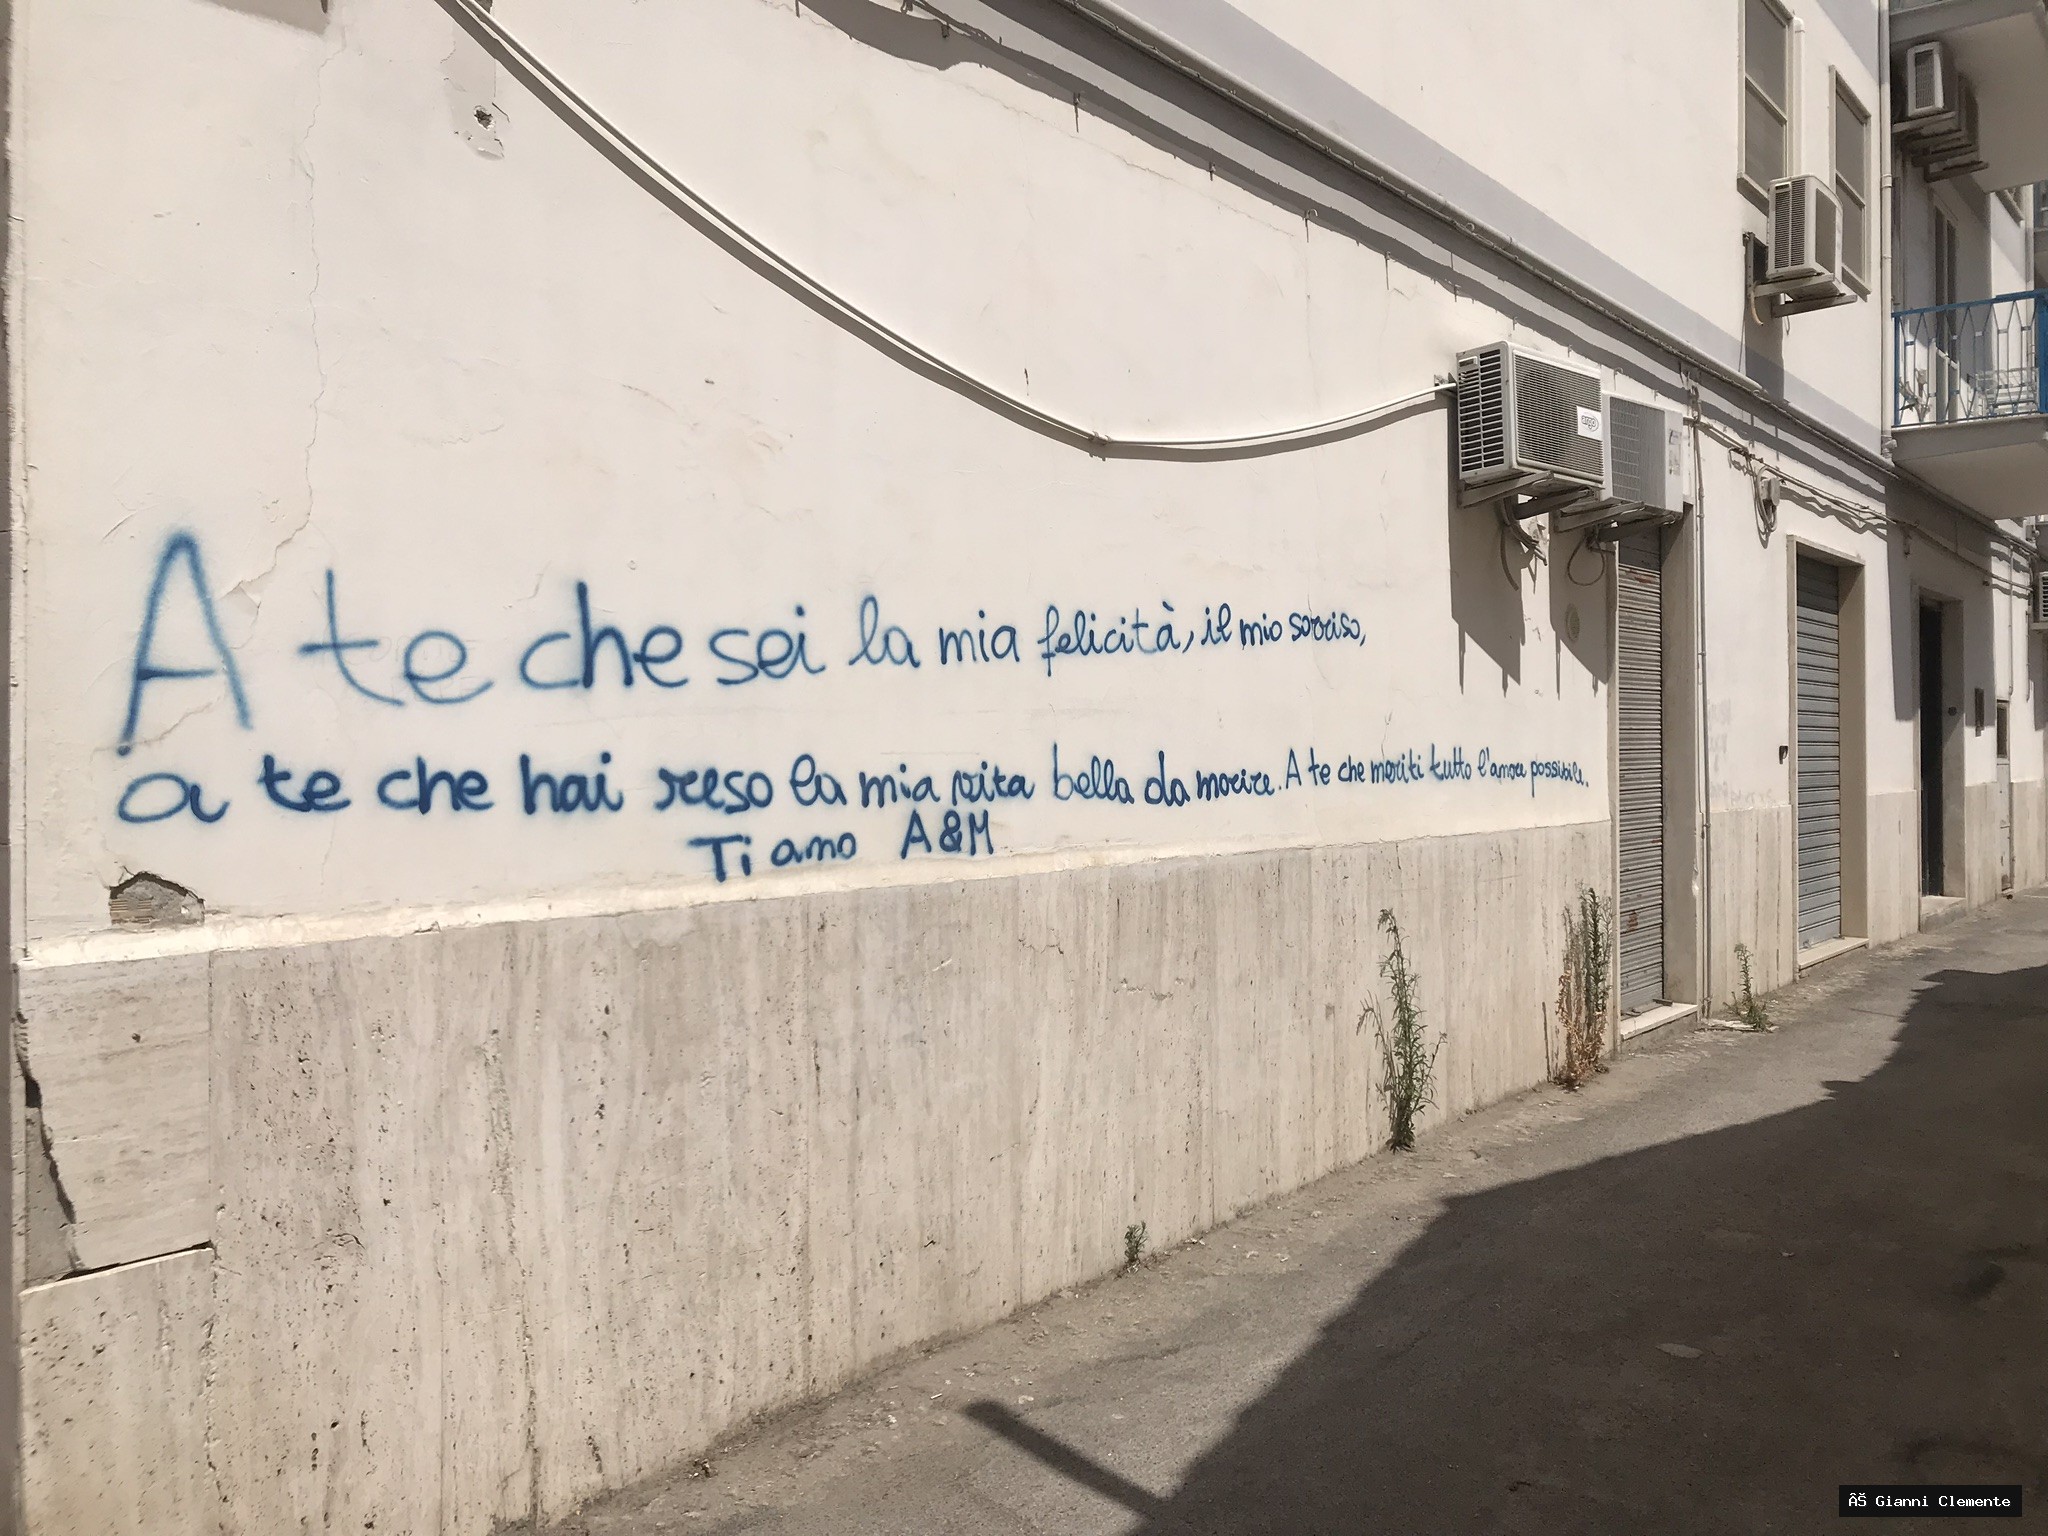 A te che sei la mia felicità, il mio sorriso,
a te che hai reso la mia vita bella da morire. A te che meriti tutto l'amore possibile.
Ti amo A&M
argo
ÂŠ Gianni Clemente